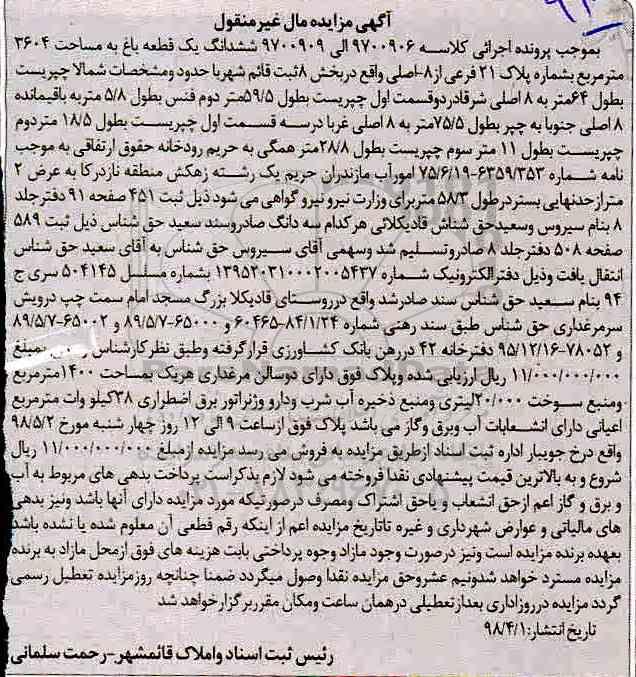 آگهی مزایده مال غیرمنقول
بموجب پرونده اجرائی کلاسه ۹۷۰۰۹۰۶ الی ۹۷۰۰۹۰۹ ششدانگ یک قطعه باغ به مساحت ۳۶۰۴
مترمربع بشماره پلاک ۲۱ فرعی از۸-اصلی واقع دربخش ۸ثبت قائم شهربا حدود ومشخصات شمالا چپریست
بطول ۶۴متر به ۸ اصلی شرقادردوقسمت اول چپریست بطول ۵۹/۵متر دوم فنس بطول ۵/۸ متربه باقیمانده
۸ اصلی جنوبا به چپر بطول ۷۵/۵متر به ۸ اصلی غربا درسه قسمت اول چپریست بطول ۱۸/۵ متردوم
چپریست بطول ۱۱ متر سوم چپریست بطول ۲۸/۸متر همگی به حریم رودخانه حقوق ارتفاقی به موجب
نامه شماره ۶۳۵۹/۳۵۳-۷۵/۶/۱۹ امورآب مازندران حریم یک رشته زهکش منطقه نازدرکا به عرض ۲
مترازحدنهایی بستردرطول ۵۸/۳ متربرای وزارت نیرو نیرو گواهی می شود ذیل ثبت ۴۵۱ صفحه ۹۱ دفترجلد
۸ بنام سیروس وسعیدحق شناش قادیکلائی هرکدام سه دانگ صادروسند سعید حق شناس ذیل ثبت ۵۸۹
صفحه ۵۰۸ دفترجلد ۸ صادروتسلیم شد وسهمی آقای سیروس حق شناس به آقای سعید حق شناس
انتقال یافت وذیل دفتر الکترونیک شماره ۱۳۹۵۲۰۳۱۰۰۰۲۰۰۵۴۳۷ بشماره مسلسل ۵۰۴۱۴۵ سری ج
۹۴ بنام سعید حق شناس سند صادرشد واقع درروستای قادیکلا بزرگ مسجد امام سمت چپ درویش
سرمرغداری حق شناس طبق سند رهنی شماره ۸۴/۱/۲۴-۶۰۴۶۵ و ۶۵۰۰۰-۸۹/۵/۷ و ۶۵۰۰۲-۸۹/۵/۷
و ۷۸۰۵۲-۹۵/۱۲/۱۶ دفترخانه ۴۲ دررهن بانک کشاورزی قرارگرفته وطبق نظرکارشناس بمبلغ
۱۱/۰۰۰/۰۰۰/۰۰۰ ریال ارزیابی شده وپلاک فوق دارای دوسالن مرغداری هریک بمساحت ۱۴۰۰مترمربع
ومنبع سوخت ۲۰/۰۰۰لیتری ومنبع ذخیره آب شرب ودارو وژنراتور برق اضطراری ۳۸کیلو وات مترمربع
اعیانی دارای انشعابات آب وبرق وگاز می باشد پلاک فوق ازساعت ۹ الی ۱۲ روز چهار شنبه مورخ ۹۸/۵/۲
واقع درخ جویبار اداره ثبت اسناد ازطریق مزایده به فروش می رسد مزایده ازمبلغ ۱۱/۰۰۰/۰۰۰/۰۰۰ ریال
شروع و به بالاترین قیمت پیشنهادی نقدا فروخته می شود لازم بذکراست پرداخت بدهی های مربوط به آب
و برق و گاز اعم ازحق انشعاب و یاحق اشتراک ومصرف درصورتیکه مورد مزایده دارای آنها باشد ونیز بدهی
های مالیاتی و عوارض شهرداری و غیره تاتاریخ مزایده اعم از اینکه رقم قطعی آن معلوم شده یا نشده باشد
بعهده برنده مزایده است ونیز درصورت وجود مازاد وجوه پرداختی بابت هزینه های فوق ازمحل مازاد به برنده
مزایده مسترد خواهد شدونیم عشروحق مزایده نقدا وصول میگردد ضمنا چنانچه روزمزایده تعطیل رسمی
گردد مزایده درروزاداری بعدازتعطیلی درهمان ساعت ومکان مقرربرگزارخواهد شد
تاریخ انتشار:۹۸/۴/۱
رئیس ثبت اسناد واملاک قائمشهر-رحمت سلمانی